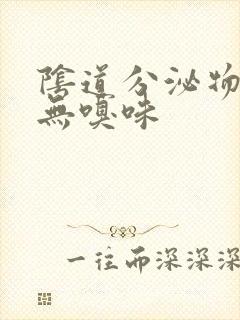 陰道分泌物
無嗅味
一往而深深深